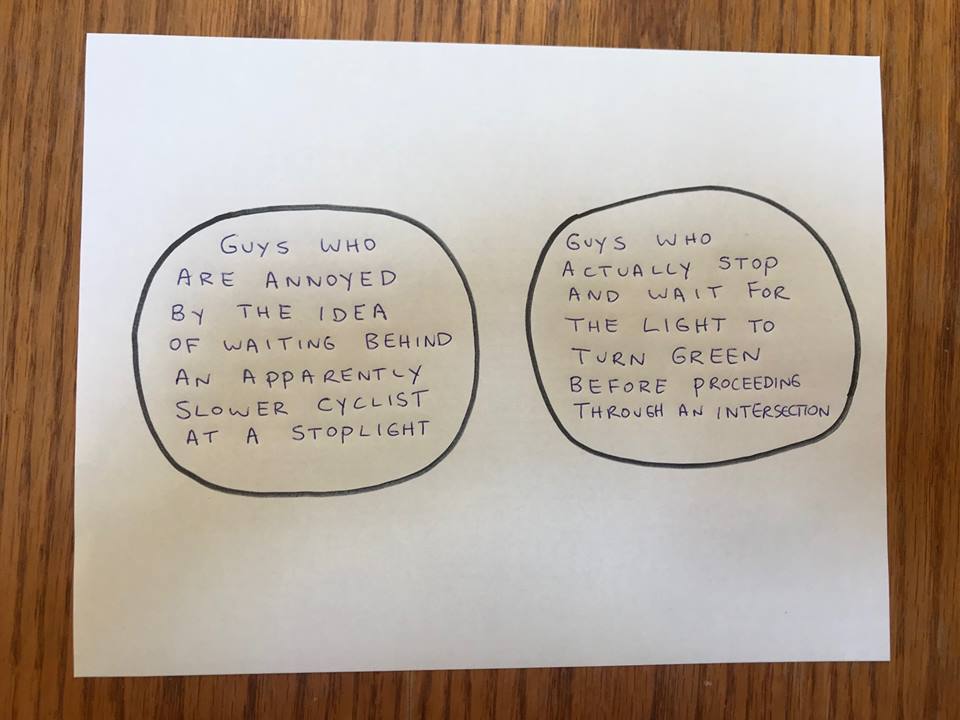 GUYS WHO
ARE ANNOYED
BY THE IDEA
OF WAITING BEHIND
AN APPARENTLY
SLOWER CYCLIST
AT A STOPLIGHT
GUYS WHO
ACTUALLY STOP
AND WAIT FOR
THE LIGHT TO
TURN GREEN
BEFORE PROCEEDING
THROUGH AN INTERSECTION